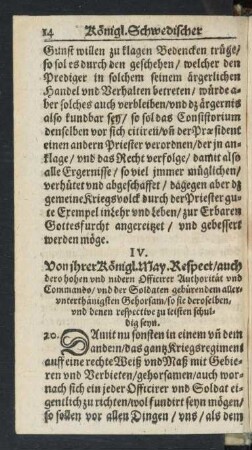 14 Königl. Schwedischer
Gunst willen zu klagen Bedencken trüge/
so sol es durch den geschehen/ welcher den
Prediger in solchem seinem ärgerlichen
Handel vnd Verhalten betreten/ würde a-
ber solches auch verbleiben/ vnd dz ärgernis
also kundbar sey/ so sol das Consistorium
denselben vor sich citiren/ vñ der Præsident
einen andern Priester verordnen/ der jn an-
klage/ vnd das Recht verfolge/ damit also
alle Ergernisse/ so viel jmmer müglichen/
verhütet vnd abgeschaffet/ dagegen aber dz
gemeine Kriegsvolck durch der Priester gu-
te Exempel in Lehr vnd Leben/ zur Erbaren
Gottesfurcht angereitzet/ vnd gebessert
werden möge.
IV.
Von jhrer Königl. May. Respect/ auch
dero hohen vnd nidern Officirer Authorität vnd
Commando/ vnd der Soldaten gebürendem aller-
vnterthänigsten Gehorsam/ so sie deroselben,
vnd denen respectivè zu leisten schul-
dig seyn.
20. Damit nu sonsten in einem vñ dem
andern/ das gantz Kriegsregiment
auff eine rechte Weiß vnd Maß mit Gebie-
ren vnd Verbieten/ gehorsamen/ auch wor-
nach sich ein jeder Officirer vnd Soldat ei-
gentlich zu richten/ wol fundirt seyn mögen/
so sollen vor allen Dingen / vns/ als dem